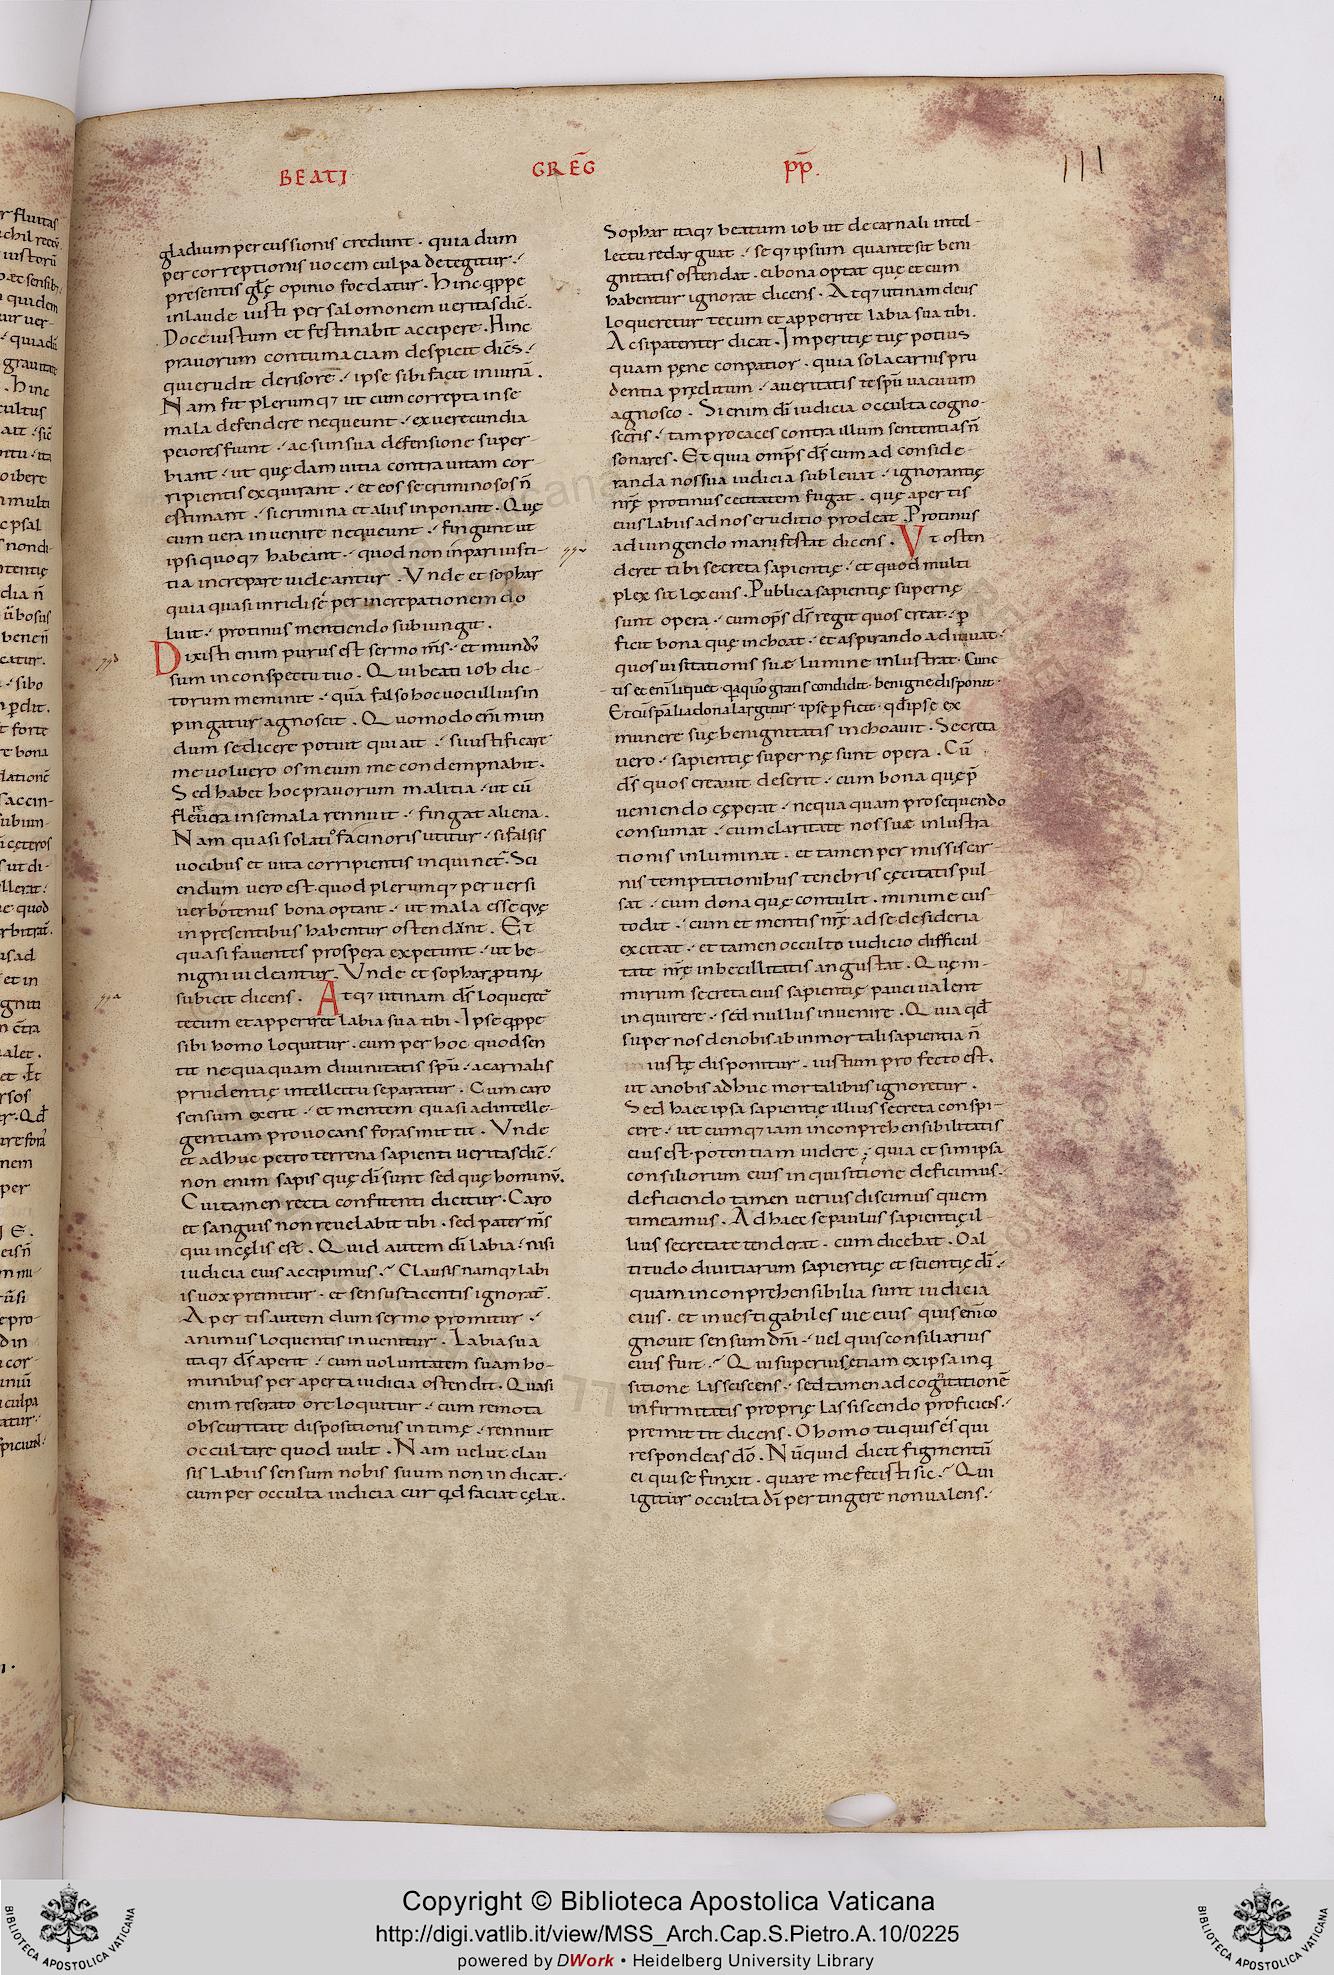 BEATI GREḠ PP̄.
III
gladium percussionis credunt . quia dum
per correptionis uocem culpa detegitur .
presentis gl̄ę opinio foedatur . Hinc q̄ppe
in laude iusti per salomonem ueritas dic̄ .
Doce iustum et festinabit accipere . Hinc
prauorum contumaciam despicit dicēs .
qui erudit derisorē . ipse sibi facit iniuriā .
Nam fit plerumq; ut cum correpta in se
mala defendere nequeunt . ex uerecundia
peiores fiunt . ac sun sua defensione super-
biant . ut quędam uitia contra uitam cor-
ripientis exquirant . et eos se criminosos n̄
estimant . si crimina et aliis inponant . Quę
cum uera inuenire nequeunt . fingunt ut
ipsi quoq; habeant . quod non inpari iusti-
tia increpare uideantur . Vnde et sophar
quia quasi inridi se per increpationem do
luit . protinus mentiendo subiungit .
Dixisti enim purus est sermo m̄s . et mund;
sum in conspectu tuo . Qui beati iob dic-
torum meminit . quā falso hoc uoci illius in
pingatur agnoscit . Quomodo eni mun
dum se dicere potuit qui ait . si iustificare
me uoluero os meum me condempnabit .
Sed habet hoc prauorum malitia . ut cū
flere uera in se mala rennuit . fingat aliena .
Nam quasi solatio facinoris utitur . si falsis
uocibus et uita corripientis inquinet̄ . Sci
endum uero est . quod plerumq; peruersi
uerbotenus bona optant . ut mala esse quę
in presentibus habentur ostendant . Et
quasi fauentes prospera expetunt . ut be-
nigni uideantur . Vnde et sophar p̄tin;
subicit dicens . Atq; utinam d̄s loqueret̄
tecum et apperiret labia sua tibi . Ipse q̄ppe
sibi homo loquitur . cum per hoc quod sen
tit nequaquam diuinitatis spū . a carnalis
prudentię intellectu separatur . Cum caro
sensum exerit . et mentem quasi ad intelle-
gentiam prouocans foras mittit . Vnde
et adhuc petro terrena sapienti ueritas dic̄ .
non enim sapis quę dī sunt sed quę hominū .
Cui tamen recta confitenti dicitur . Caro
et sanguis non reuelabit tibi . sed pater m̄s
qui in cęlis est . Quid autem dī labia . nisi
iudicia eius accipimus . Clausis namq; labi
is uox premitur . et sensus tacentis ignorat̄ .
Apertis autem dum sermo promitur .
animus loquentis inuenitur . Labia sua
itaq; d̄s aperit . cum uoluntatem suam ho-
minibus per aperta iudicia ostendit . Quasi
enim reserato ore loquitur . cum remota
obscuritate dispositionis intimę . rennuit
occultare quod uult . Nam uelut clau
sis labiis sensum nobis suum non indicat .
cum per occulta iudicia cur qd faciat cęlat .
Sophar itaq; beatum iob ut de carnali intel-
lectu redarguat . se q; ipsum quante sit beni
gnitatis ostendat . ei bona optat quę et cum
habentur ignorat dicens . Atq; utinam deus
loqueretur tecum et apperiret labia sua tibi .
Ac si patenter dicat . Imperitię tuę potius
quam pęne conpatior . quia sola carnis pru
dentia pręditum . a ueritatis te spū uacuum
agnosco . Si enim dī iudicia occulta cogno-
sceris . tam procaces contra illum sententias n̄
sonares . Et quia omp̄s d̄s cum ad conside-
randa nos sua iudicia subleuat . ignorantię
nr̄ę protinus cecitatem fugat . quę apertis
eius labiis ad nos eruditio prodeat . Protinus
adiungendo manifestat dicens . Vt osten
deret tibi secreta sapientię . et quod multi
plex sit lex eius . Publica sapientię supernę
sunt opera . cum op̄s d̄s regit quos creat . p
ficit bona quę inchoat . et aspirando adiuuat .
quos uisitationis suæ lumine inlustrat . Cunc
tis et enī liquet q̄a quos gratis condidit . benigne disponit .
Et cū sp̄alia dona largitur . ipse pficit . qd ipse ex
munere suę benignitatis inchoauit . Secreta
uero . sapientię supernę sunt opera . Cū
d̄s quos creauit deserit . cum bona quę p̄
ueniendo cęperat . nequaquam prosequendo
consumat . cum claritate nos suæ inlustra
tionis inluminat . et tamen permissis car-
nis temptitionibus tenebris cęcitatis pul
sat . cum dona quę contulit . minime cus-
todit . cum et mentis nr̄ę ad se desideria
excitat . et tamen occulto iudicio difficul
tate nr̄ę inbecillitatis angustat . Quę ni-
mirum secreta eius sapientię pauci ualent
inquirere . sed nullus inuenire . Quia qd
super nos de nobis ab inmortali sapientia n̄
iniustę disponitur . iustum profecto est .
ut a nobis adhuc mortalibus ignoretur .
Sed haec ipsa sapientię illius secreta conspi-
cere . ut cumq; iam inconprehensibilitatis
eius est . potentiam uidere . quia et si in ipsa
consiliorum eius inquisitione deficimus .
deficiendo tamen uerius discimus quem
timeamus . Ad haec se paulus sapientię il-
lius secreta tetenderat . cum dicebat . O al
titudo diuitiarum sapientię et scientię dī .
quam inconprehensibilia sunt iudicia
eius . et inuestigabiles uie eius quis eni co
gnouit sensum dn̄i . uel quis consiliarius
eius fuit . Qui superius etiam ex ipsa inq
sitione lassescens . sed tamen ad cogitationē
infirmitatis proprię lassiscendo proficiens .
premittit dicens . O homo tu quis es qui
respondeas dō . Nūquid dicit figmentū
ei qui se finxit . quare me fecisti sic . Qui
igitur occulta dī pertingere non ualens .
Copyright © Biblioteca Apostolica Vaticana
http://digi.vatlib.it/view/MSS_Arch.Cap.S.Pietro.A.10/0225
powered by DWork • Heidelberg University Library
BIBLIOTECA APOSTOLICA VATICANA
BIBLIOTECA APOSTOLICA VATICANA